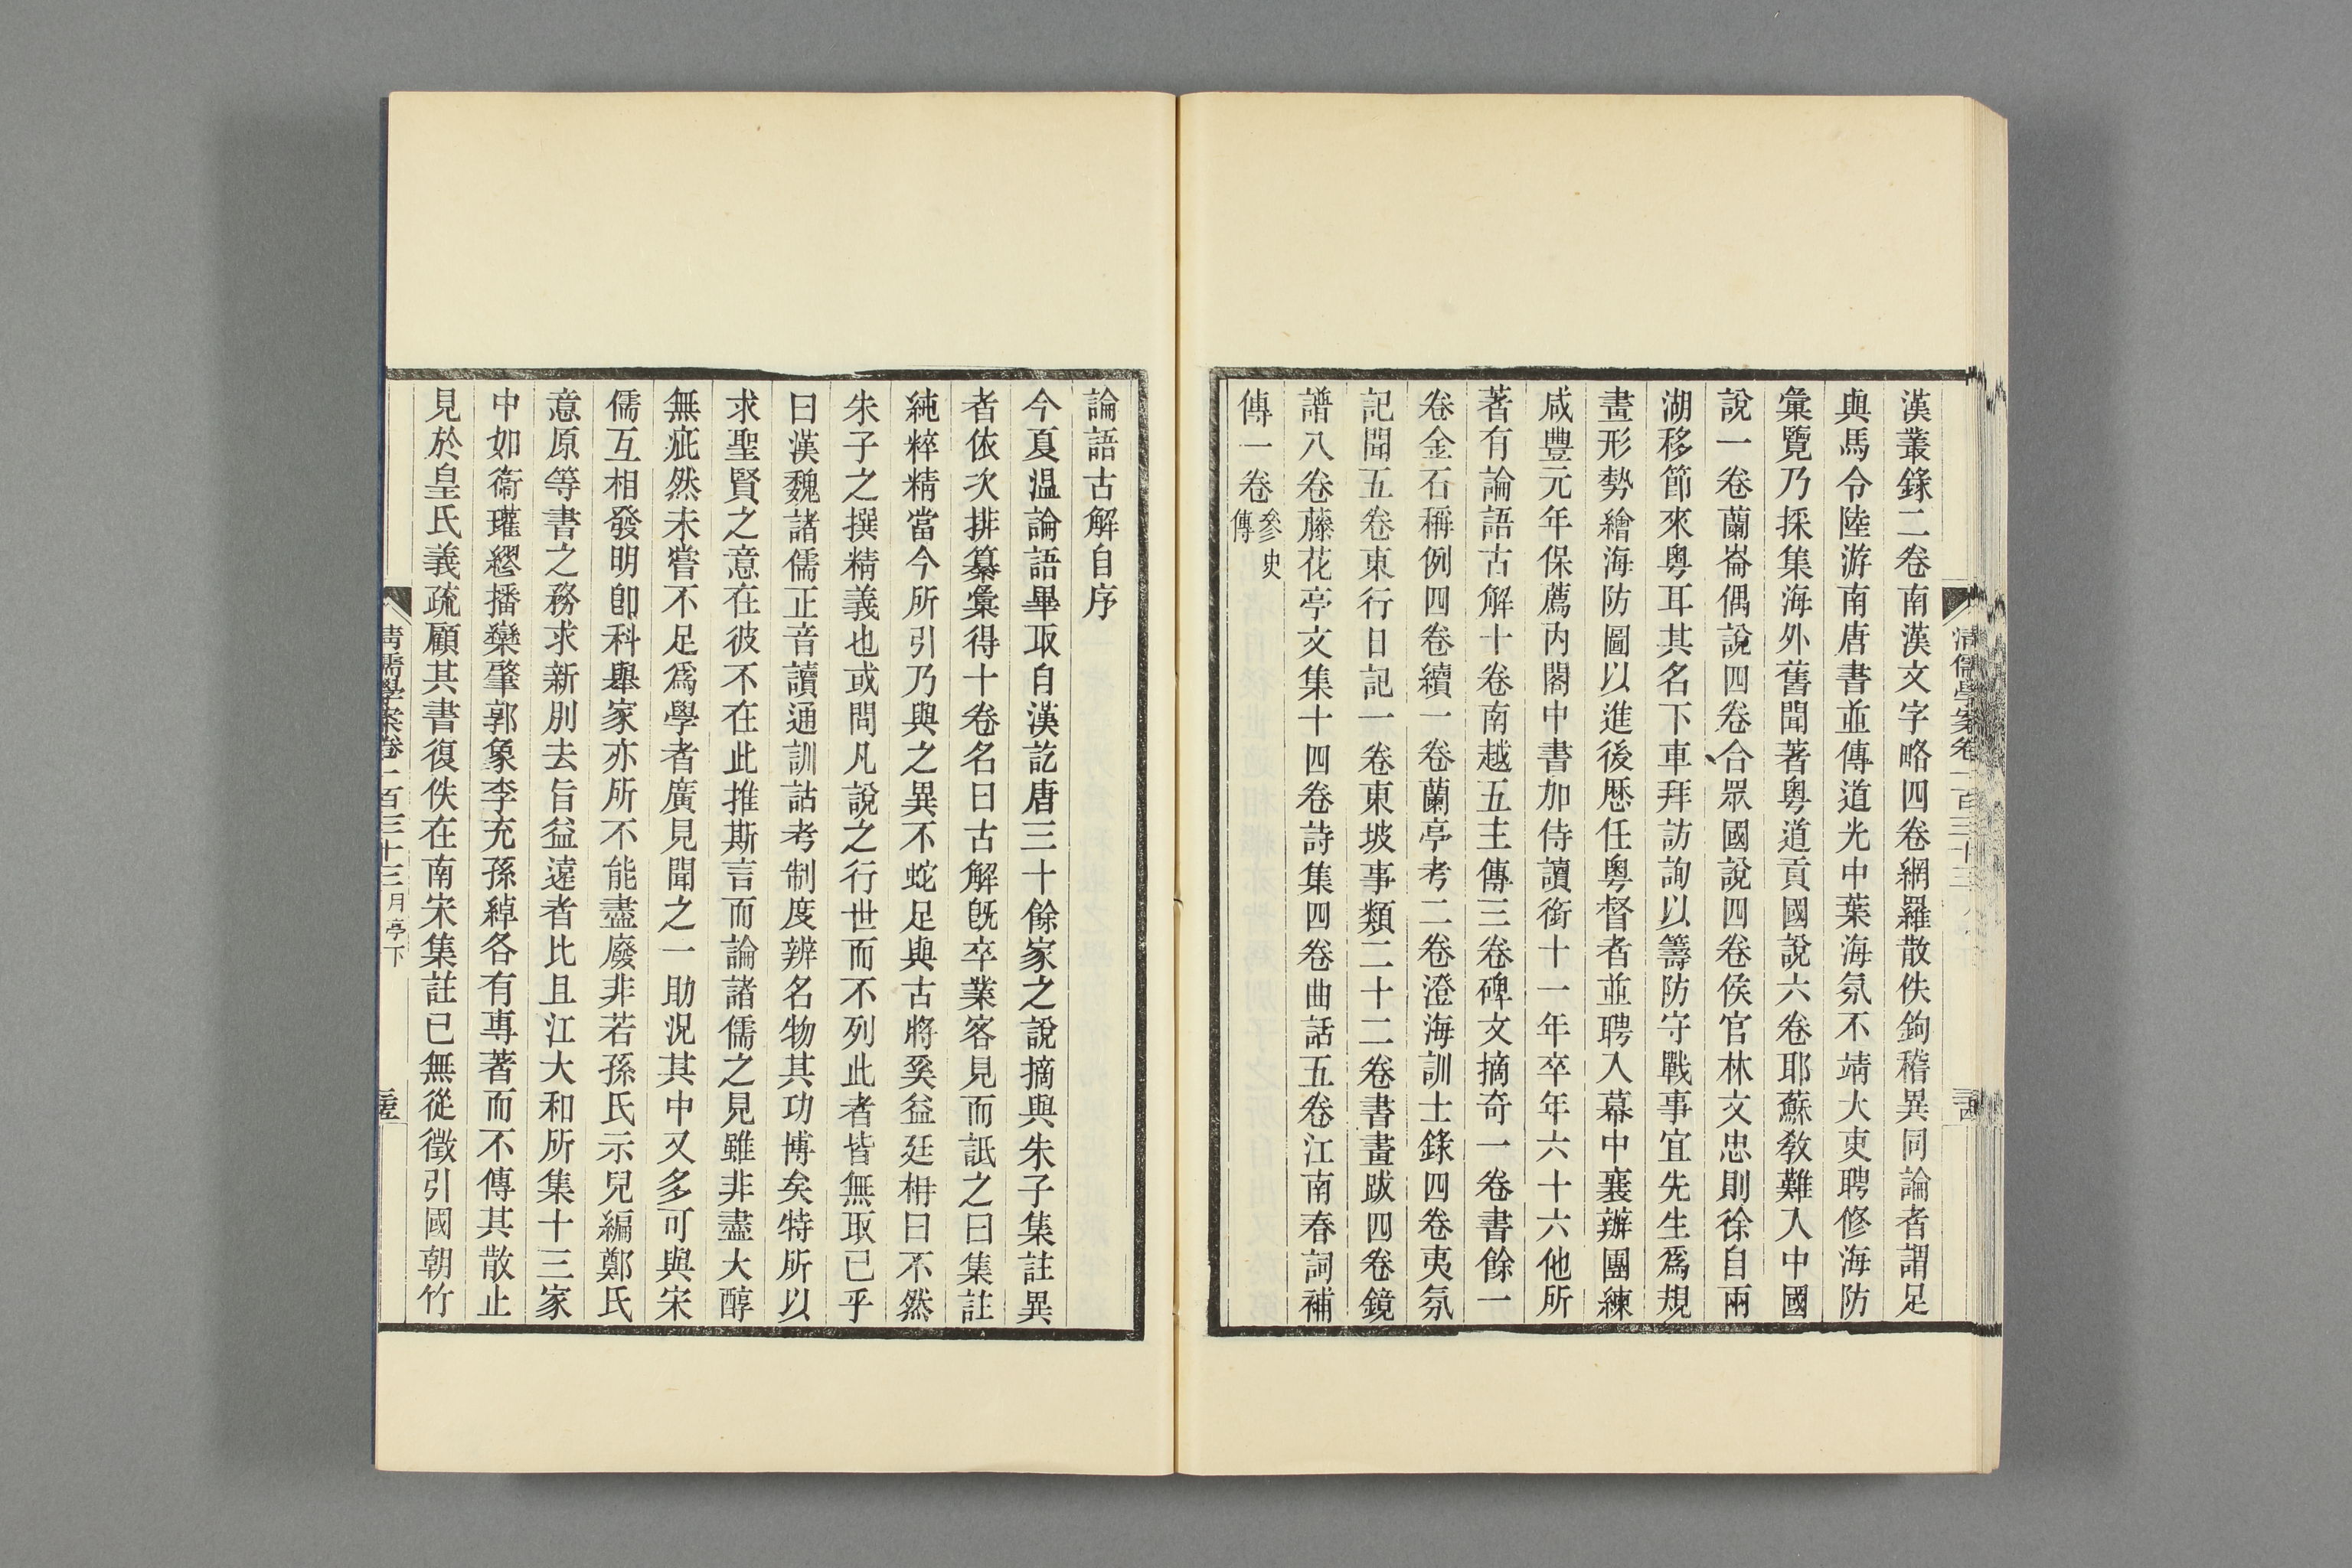 漢叢錄二卷南漢文字略四卷網羅散佚鉤稽異同論者謂足
與馬令陸游南唐書並傳道光中葉海氛不靖大吏聘修海防
彙覽乃採集海外舊聞著粵道貢國說六卷耶蘇敎難入中國
說一卷蘭崙偶說四卷合眾國說四卷侯官林文忠則徐自兩
湖移節來粵耳其名下車拜訪詢以籌防守戰事宜先生爲規
畫形勢繪海防圖以進後歷任粵督者並聘入幕中襄辦團練
咸豐元年保薦內閣中書加侍讀銜十一年卒年六十六他所
著有論語古解十卷南越五主傳三卷碑文摘奇一卷書餘一
卷金石稱例四卷續一卷蘭亭考二卷澄海訓士錄四卷夷氛
記聞五卷東行日記一卷東坡事類二十二卷書畫跋四卷鏡
譜八卷藤花亭文集十四卷詩集四卷曲話五卷江南春詞補
傳一卷參史傳
清儒學案卷一百三十三
論語古解自序
今夏温論語畢取自漢訖唐三十餘家之說摘與朱子集註異
者依次排纂彙得十卷名曰古解旣卒業客見而詆之曰集註
純粹精當今所引乃與之異不蛇足與古將奚益廷枏曰不然
朱子之撰精義也或問凡說之行世而不列此者皆無取已乎
曰漢魏諸儒正音讀通訓詁考制度辨名物其功博矣特所以
求聖賢之意在彼不在此推斯言而論諸儒之見雖非盡大醇
無疵然未嘗不足爲學者廣見聞之一助況其中又多可與宋
儒互相發明卽科舉家亦所不能盡廢非若孫氏示兒編鄭氏
意原等書之務求新別去旨益遠者比且江大和所集十三家
中如衞瓘繆播欒肇郭象李充孫綽各有專著而不傳其散止
見於皇氏義疏顧其書復佚在南宋集註已無從徵引國朝竹
清儒學案卷一百三十三 月亭下